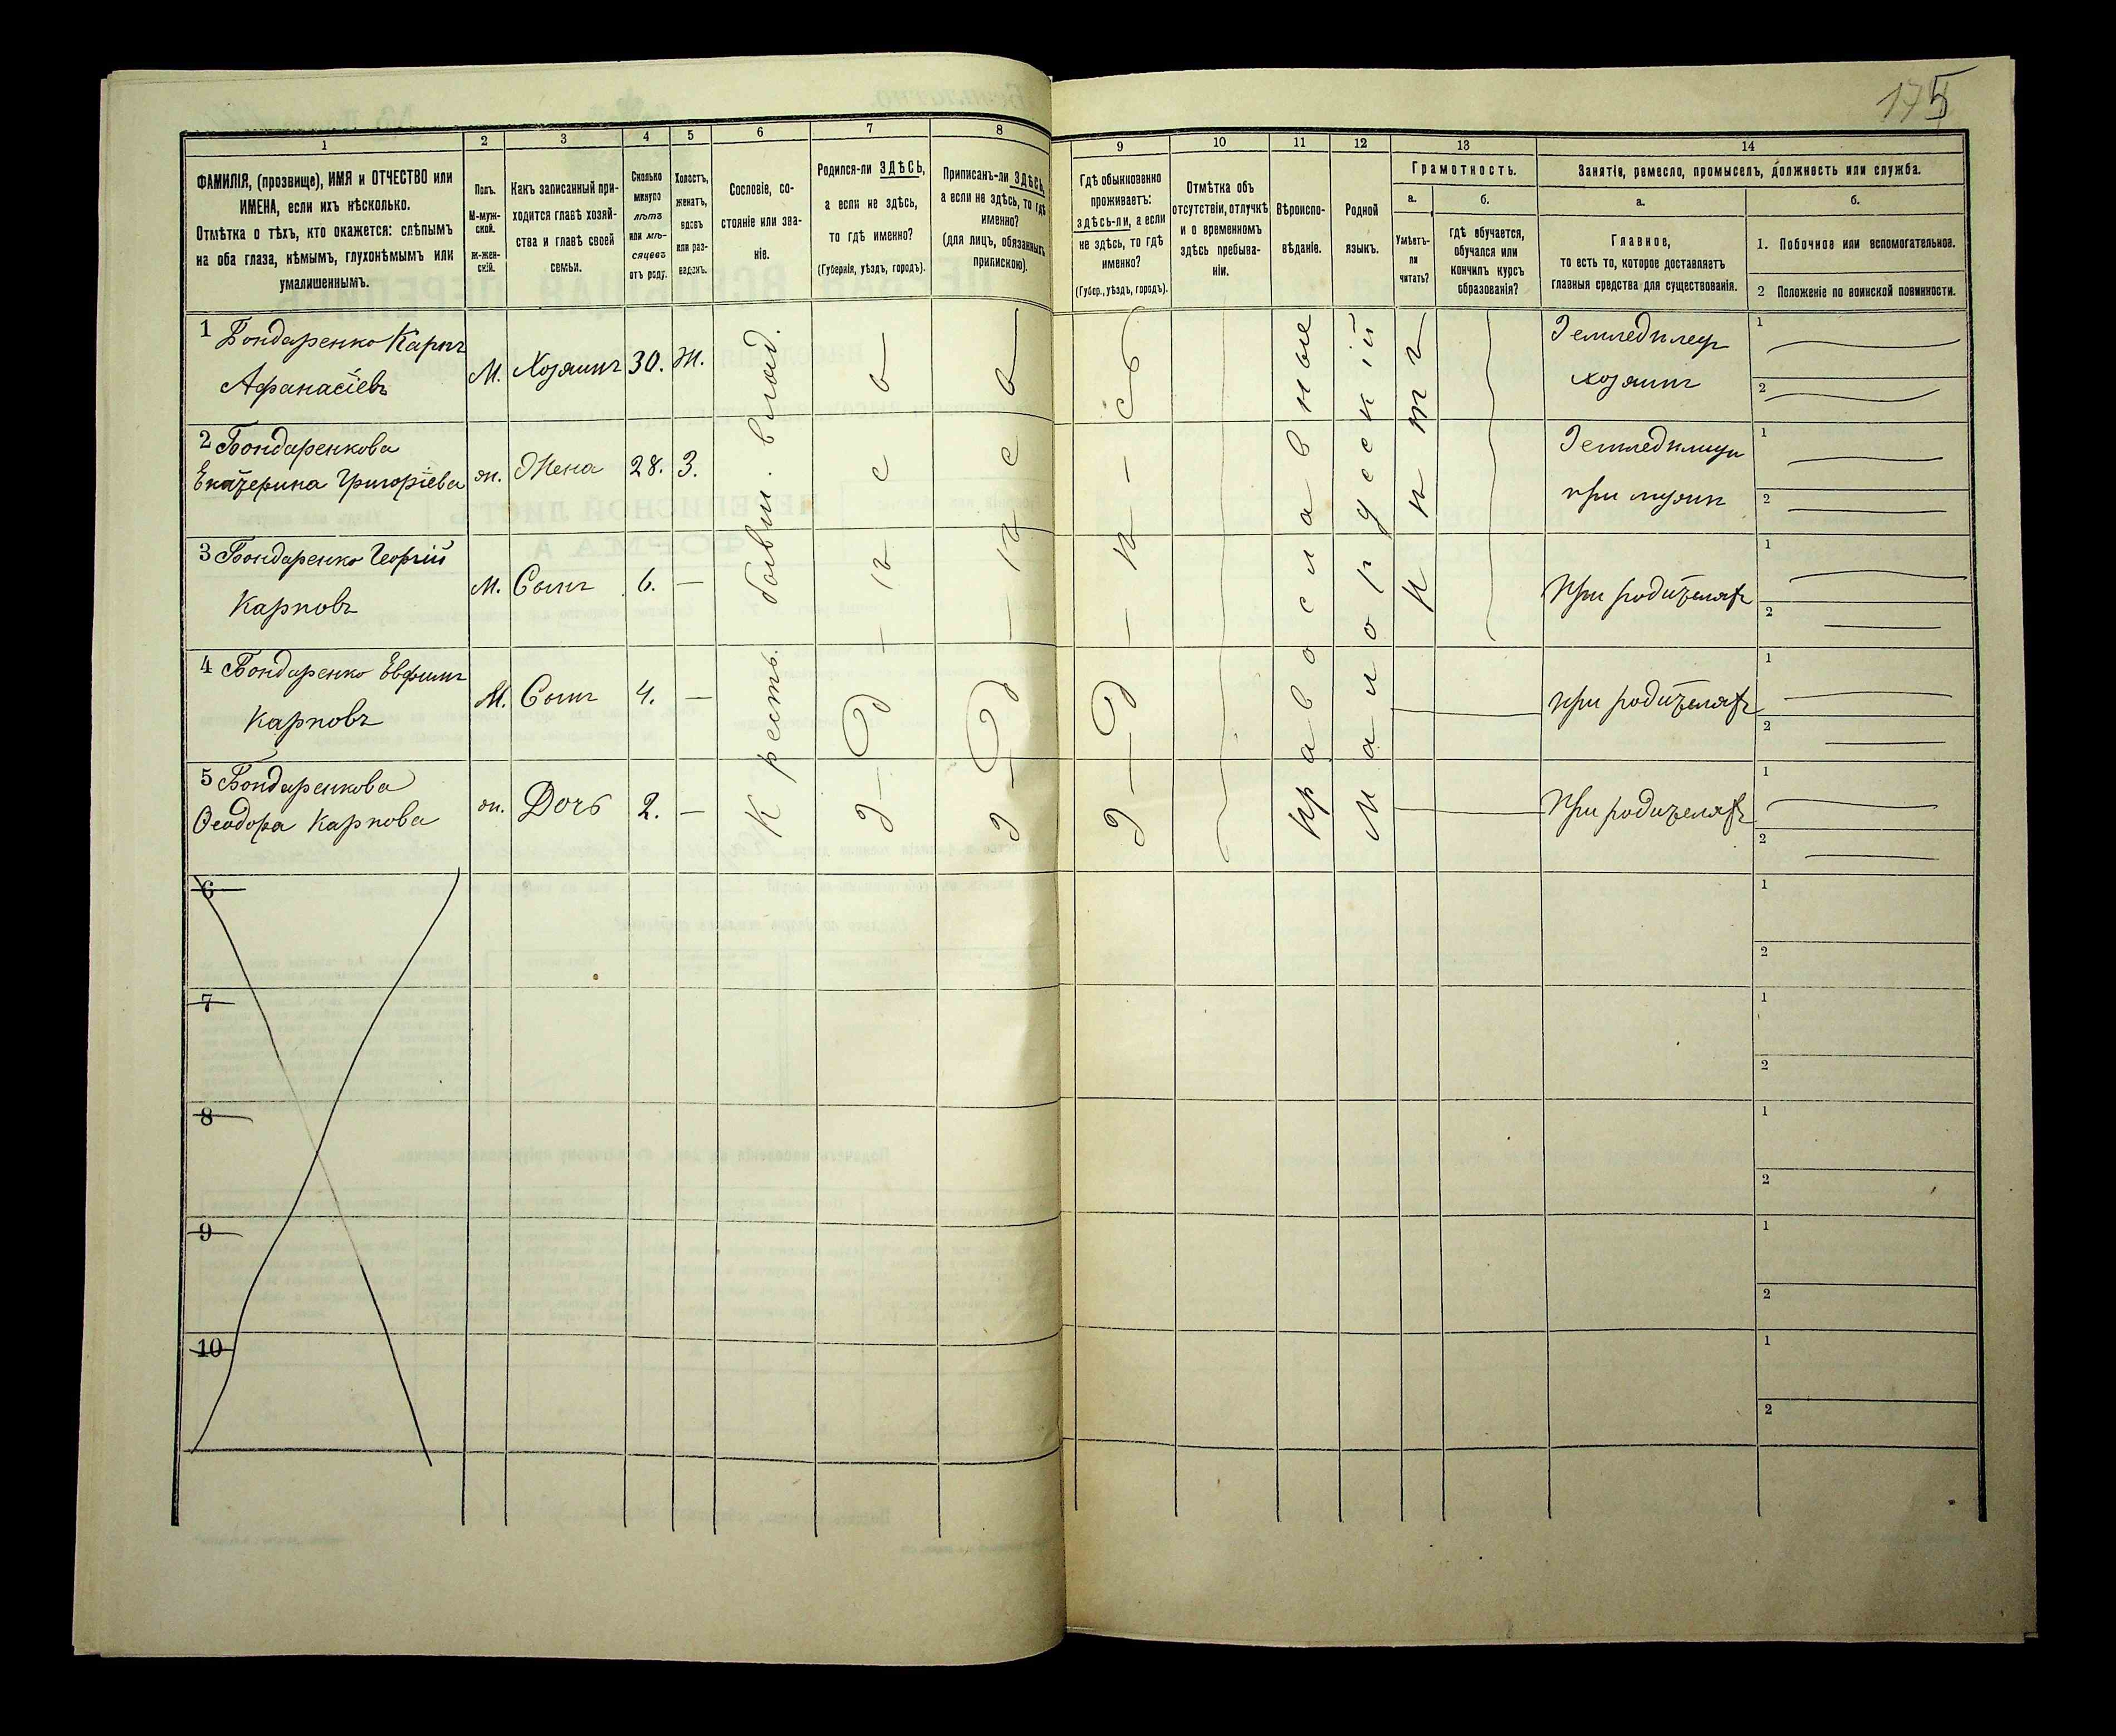 175
1
2
3
4
5
6
7
8
9
10
11
12
13
14
ФАМИЛІЯ, (прозвище), ИМЯ и ОТЧЕСТВО или
ИМЕНА, если ихъ нѣсколько.
Отмѣтка о тѣхъ, кто окажется: слѣпымъ
на оба глаза, нѣмымъ, глухонѣмымъ или
умалишеннымъ.
Полъ.
М-муж-
ской.
ж-жен-
скій.
Какъ записанный при-
ходится главѣ хозяй-
ства и главѣ своей
семьи.
Сколько
минуло
лѣтъ
или мѣ-
сяцевъ
отъ роду.
Холостъ,
женатъ,
вдовъ
или раз-
веденъ.
Сословіе, со-
стояніе или зва-
ніе.
Родился-ли ЗДѢСЬ,
а если не здѣсь,
то гдѣ именно?
(Губернія, уѣздъ, городъ).
Приписанъ-ли ЗДѢСЬ,
а если не здѣсь, то гдѣ
именно?
(для лицъ, обязанныхъ
припискою).
Гдѣ обыкновенно
проживаетъ:
здѣсь-ли, а если
не здѣсь, то гдѣ
именно?
(Губер., уѣздъ, городъ).
Отмѣтка объ
отсутствіи, отлучкѣ
и о временномъ
здѣсь пребыва-
ніи.
Вѣроиспо-
вѣданіе.
Родной
языкъ.
Грамотность.
а.
Умѣетъ-
ли
читать?
б.
гдѣ обучается,
обучался или
кончилъ курсъ
образованія?
Занятіе, ремесло, промыселъ, должность или служба.
а.
Главное,
то есть то, которое доставляетъ
главныя средства для существованія.
б.
1. Побочное или вспомогательное.
2 Положеніе по воинской повинности.
1 Бондаренко Карпъ
Афанасіевъ
М.
Хозяинъ
30.
Ж.
Земледѣлецъ
хозяинъ
1
2
2 Бондаренкова
Екатерина Григоріева
ж.
Жена
28.
З.
Земледѣлица
при мужѣ
1
2
3 Бондаренко Георгій
Карповъ
М.
Сынъ
6.
—
При родителяхъ
1
2
4 Бондаренко Евфимъ
Карповъ
М.
Сынъ
4.
—
при родителяхъ
1
2
5 Бондаренкова
Ѳеодора Карпова
ж.
Дочь
2.
—
При родителяхъ
1
2
Крестъ. бывш. влад.
З—д—ѣ—с—ь
З—д—ѣ—с—ь
З—д—ѣ—с—ь
Православные
Малорусскій
нѣтъ
6
1
2
7
1
2
8
1
2
9
1
2
10
1
2